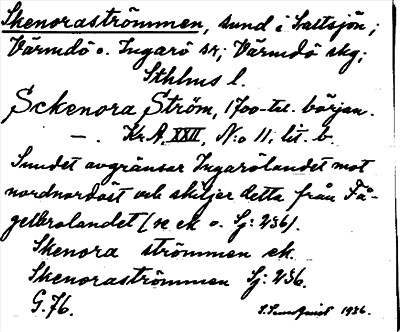 Skenoraströmmen, sund i Saltsjön;
Värmdö o. Ingarö sr; Värmdö skg;
Sthlms l.
Sckenora Ström, 1700-tal. början.
— . Kr. A, XXII, N:o 11, lit. b.
Sundet avgränsar Ingarölandet mot
nordnordöst och skiljer detta från Få-
gelbrolandet (se ek o. Sj: 236).
Skenora strömmen ek.
Skenoraströmmen Sj: 236.
G. 76.
1936.